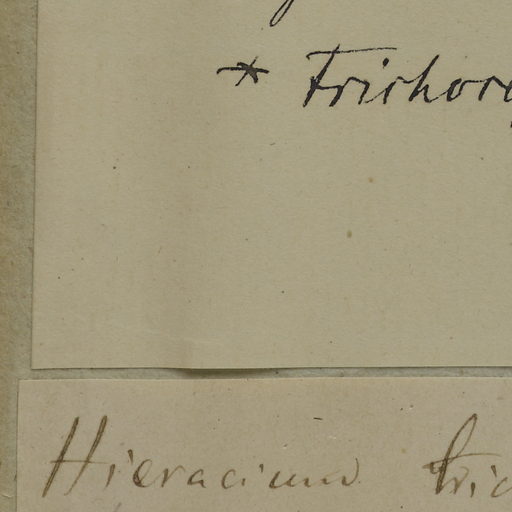 * trichor
Hieracium tric